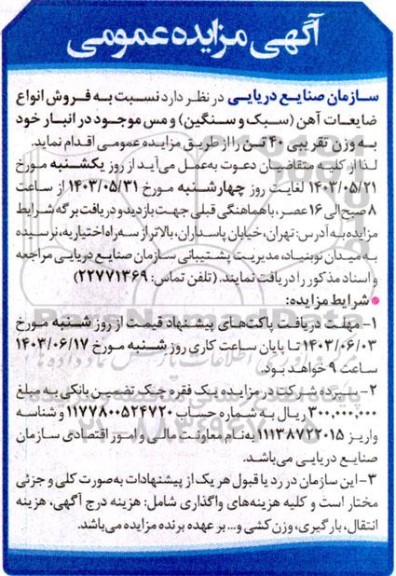 آگهی مزایده عمومی
سازمان صنایع دریایی در نظر دارد نسبت به فروش انواع
ضایعات آهن (سبک و سنگین) و مس موجود در انبار خود
به وزن تقریبی ۴۰ تن را از طریق مزایده عمومی اقدام نماید.
لذا از کلیه متقاضیان دعوت به‌عمل می‌آید از روز یکشنبه مورخ
۱۴۰۳/۰۵/۲۱ لغایت روز چهارشنبه مورخ ۱۴۰۳/۰۵/۳۱ از ساعت
۸ صبح الی ۱۶ عصر، با هماهنگی قبلی جهت بازدید و دریافت برگه شرایط
مزایده به آدرس: تهران، خیابان پاسداران، بالاتر از سه راه اختیاریه، نرسیده
به میدان نوبنیاد، مدیریت پشتیبانی سازمان صنایع دریایی مراجعه
و اسناد مذکور را دریافت نمایند. (تلفن تماس: ۲۲۷۷۱۳۶۹)
● شرایط مزایده:
۱- مهلت دریافت پاکت‌های پیشنهاد قیمت از روز شنبه مورخ
۱۴۰۳/۰۶/۰۳ تا پایان ساعت کاری روز شنبه مورخ ۱۴۰۳/۰۶/۱۷
ساعت ۹ خواهد بود.
۲- سپرده شرکت در مزایده یک فقره چک تضمین بانکی به مبلغ
۳۰۰,۰۰۰,۰۰۰ ریال به شماره حساب ۱۱۷۷۸۰۰۵۲۴۷۲۰ و شناسه
واریز ۱۱۱۳۸۷۲۲۰۱۵ به‌نام معاونت مالی و امور اقتصادی سازمان
صنایع دریایی می‌باشد.
۳- این سازمان در رد یا قبول هر یک از پیشنهادات به‌صورت کلی و جزئی
مختار است و کلیه هزینه‌های واگذاری شامل: هزینه درج آگهی، هزینه
انتقال، بارگیری، وزن کشی و... بر عهده برنده مزایده می‌باشد.
ParsNamadData